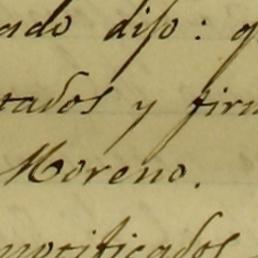 ado dijo: q
tados y firm
Moreno.
notificados